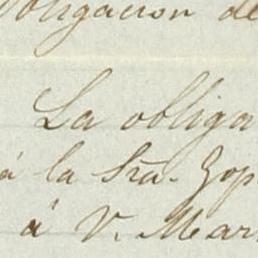 Obligacion de
La obliga
á la Sra. Zop
á V. Mar